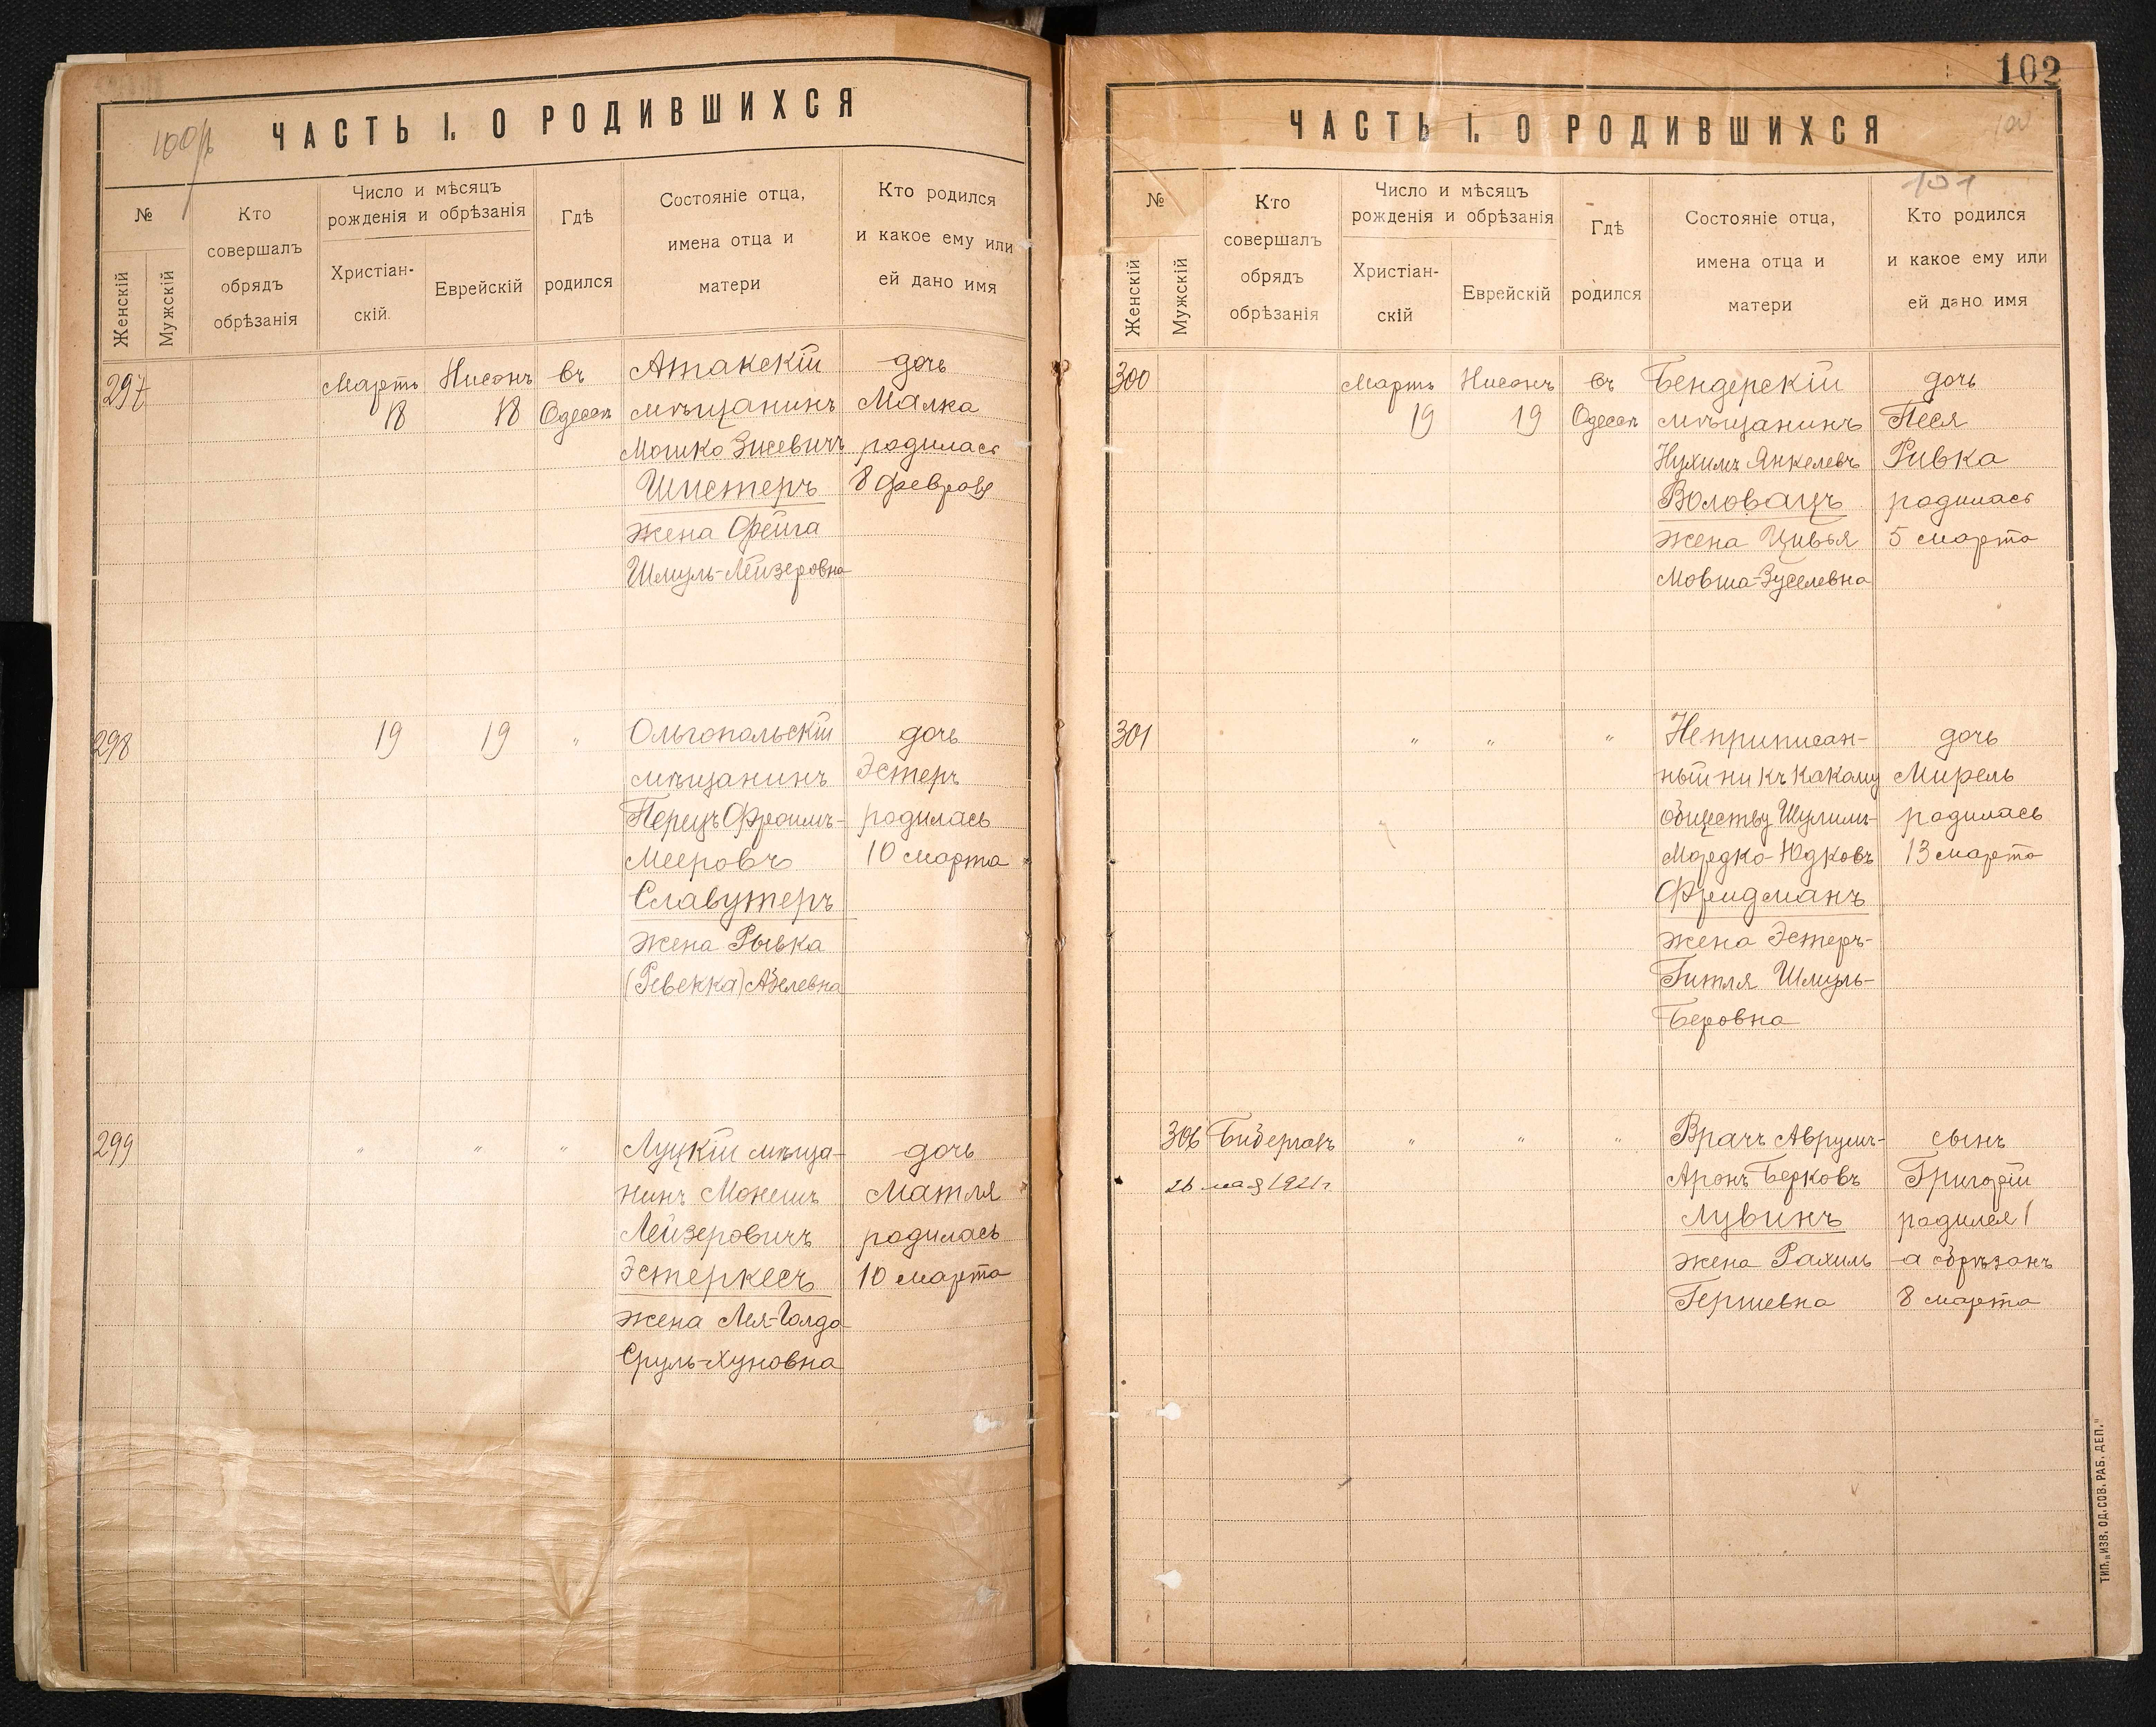 100 об
ЧАСТЬ I. О РОДИВШИХСЯ
№
Женскій
Мужскій
Кто
совершалъ
обрядъ
обрѣзанія
Число и мѣсяцъ
рожденія и обрѣзанія
Христіан-
скій.
Еврейскій
Гдѣ
родился
Состояніе отца,
имена отца и
матери
Кто родился
и какое ему или
ей дано имя
297
Мартъ
18
Нисонъ
18
въ
Одессѣ
Атакскій
мѣщанинъ
Мошко Зисевичъ
Шпстеръ
жена Фейга
Шмуль-Лейзеровна
дочь
Малка
родилась
8 февраля
298
19
19
"
Ольгопольскій
мѣщанинъ
Перецъ Фроимъ-
Мееровъ
Славутеръ
жена Рывка
(Ревекка) Абелевна
дочь
Эстеръ
родилась
10 марта
299
"
"
"
Луцкій мѣща-
нинъ Монешъ
Лейзеровичъ
Эстеркесъ
жена Лея-Голда
Сруль-Хуновна
дочь
Матля
родилась
10 марта
102
100
101
ЧАСТЬ I. О РОДИВШИХСЯ
№
Женскій
Мужскій
Кто
совершалъ
обрядъ
обрѣзанія
Число и мѣсяцъ
рожденія и обрѣзанія
Христіан-
скій
Еврейскій
Гдѣ
родился
Состояніе отца,
имена отца и
матери
Кто родился
и какое ему или
ей дано имя
300
Мартъ
19
Нисонъ
19
въ
Одессѣ
Бендерскій
мѣщанинъ
Нухимъ Янкелевъ
Воловацъ
жена Цивья
Мовша-Зуселевна
дочь
Песя
Ривка
родилась
5 марта
301
"
"
"
Неприписан-
ный ни къ какому
обществу Шулимъ-
Мордко-Юдковъ
Фридманъ
жена Эстеръ-
Гитля Шмуль-
Беровна
дочь
Мирель
родилась
13 марта
306
26 мая 1921 г
"
"
"
Врачъ Аврумъ-
Аронъ Берковъ
Лувинъ
жена Рахиль
Гершевна
сынъ
Григорій
родился 1
а обрѣзанъ
8 марта
ТИП. „ИЗВ. ОД. СОВ. РАБ. ДЕП."